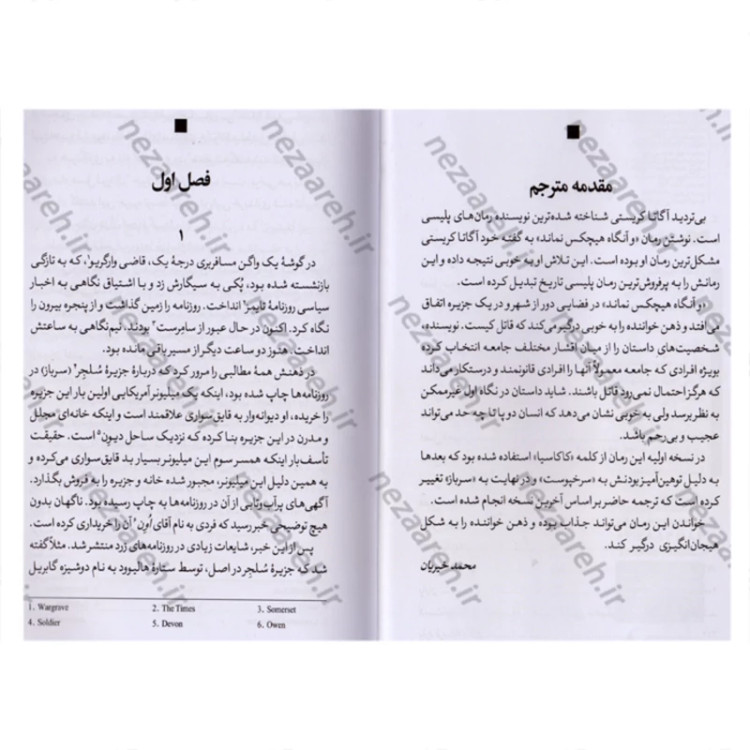 مقدمه مترجم
بی‌تردید آگاتا کریستی شناخته شده‌ترین نویسنده رمان‌های پلیسی
است. نوشتن رمان «و آنگاه هیچکس نماند» به گفته خود آگاتا کریستی
مشکل‌ترین رمان او بوده است. این تلاش او به خوبی نتیجه داده و این
رمانش را به پرفروش‌ترین رمان پلیسی تاریخ تبدیل کرده است.
«و آنگاه هیچکس نماند» در فضایی دور از شهر و در یک جزیره اتفاق
می‌افتد و ذهن خواننده را به خوبی درگیر می‌کند که قاتل کیست. نویسنده،
شخصیت‌های داستان را از میان اقشار مختلف جامعه انتخاب کرده
بویژه افرادی که جامعه معمولاً آنها را افرادی قانونمند و درستکار می‌داند
که هرگز احتمال نمی‌رود قاتل باشند. شاید داستان در نگاه اول غیرممکن
به نظر برسد ولی به خوبی نشان می‌دهد که انسان دو پا تا چه حد می‌تواند
عجیب و بی‌رحم باشد.
در نسخه اولیه این رمان از کلمه «کاکاسیا» استفاده شده بود که بعدها
به دلیل توهین‌آمیز بودنش به «سرخپوست» و در نهایت به «سرباز» تغییر
کرده است که ترجمه حاضر بر اساس آخرین نسخه انجام شده است.
خواندن این رمان می‌تواند جذاب بوده و ذهن خواننده را به شکل
هیجان‌انگیزی درگیر کند.
محمد خیریان
فصل اول
۱
در گوشهٔ یک واگن مسافربری درجهٔ یک، قاضی وارگریو¹، که به تازگی
بازنشسته شده بود، پُکی به سیگارش زد و با اشتیاق نگاهی به اخبار
سیاسی روزنامهٔ تایمز² انداخت. روزنامه را زمین گذاشت و از پنجره بیرون را
نگاه کرد. اکنون در حال عبور از سامرست³ بودند. نیم‌نگاهی به ساعتش
انداخت. هنوز دو ساعت دیگر از مسیر باقی مانده بود.
در ذهنش همهٔ مطالبی را مرور کرد که دربارهٔ جزیرهٔ سُلجر⁴ (سرباز) در
روزنامه‌ها چاپ شده بود، اینکه یک میلیونر آمریکایی اولین بار این جزیره
را خریده، او دیوانه‌وار به قایق‌سواری علاقمند است و اینکه خانه‌ای مجلل
و مدرن در این جزیره بنا کرده که نزدیک ساحل دیون⁵ است. حقیقت
تأسف‌بار اینکه همسر سوم این میلیونر بسیار بد قایق‌سواری می‌کرده و
به همین دلیل این میلیونر، مجبور شده خانه و جزیره را به فروش بگذارد.
آگهی‌های پرآب‌وتابی از آن در روزنامه‌ها به چاپ رسیده بود. ناگهان بدون
هیچ توضیحی خبر رسید که فردی به نام آقای اُون⁶ آن را خریداری کرده است.
پس از این خبر، شایعات زیادی در روزنامه‌های زرد منتشر شد. مثلاً گفته
شد که جزیرهٔ سُلجر در اصل، توسط ستارهٔ هالیوود به نام دوشیزه گابریل
1. Wargrave 2. The Times 3. Somerset
4. Soldier 5. Devon 6. Owen
nezaareh.ir
nezaareh.ir
nezaareh.ir
nezaareh.ir
nezaareh.ir
nezaareh.ir